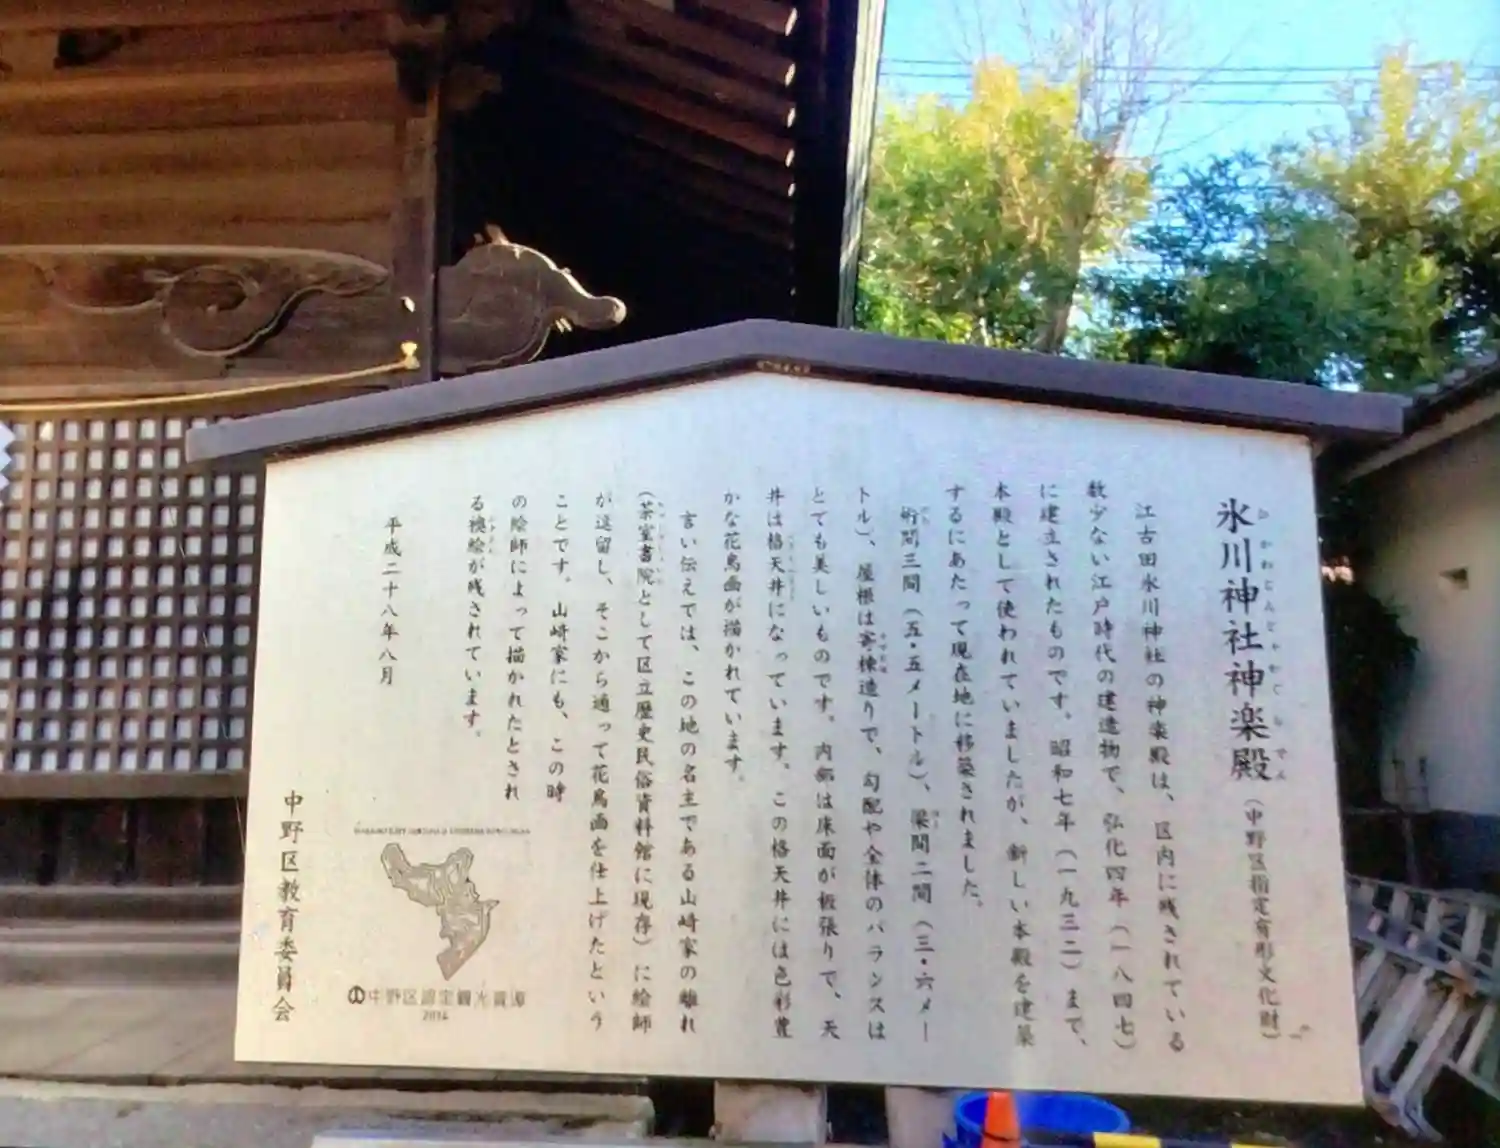 氷川神社神楽殿（中野区指定有形文化財）
ひかわじんじゃかぐらでん
江古田氷川神社の神楽殿は、区内に残されている
数少ない江戸時代の建造物で、弘化四年（一八四七）
に建立されたものです。昭和七年（一九三二）まで、
本殿として使われていましたが、新しい本殿を建築
するにあたって現在地に移築されました。
桁間三間（五・五メートル）、梁間二間（三・六メー
トル）、屋根は寄棟造りで、勾配や全体のバランスは
とても美しいものです。内部は床面が板張りで、天
井は格天井になっています。この格天井には色彩豊
かな花鳥画が描かれています。
言い伝えでは、この地の名主である山崎家の離れ
（茶室書院として区立歴史民俗資料館に現存）に絵師
が逗留し、そこから通って花鳥画を仕上げたという
ことです。山崎家にも、この時
の絵師によって描かれたとされ
る襖絵が残されています。
平成二十八年八月
中野区教育委員会
中野区認定観光資源
2014